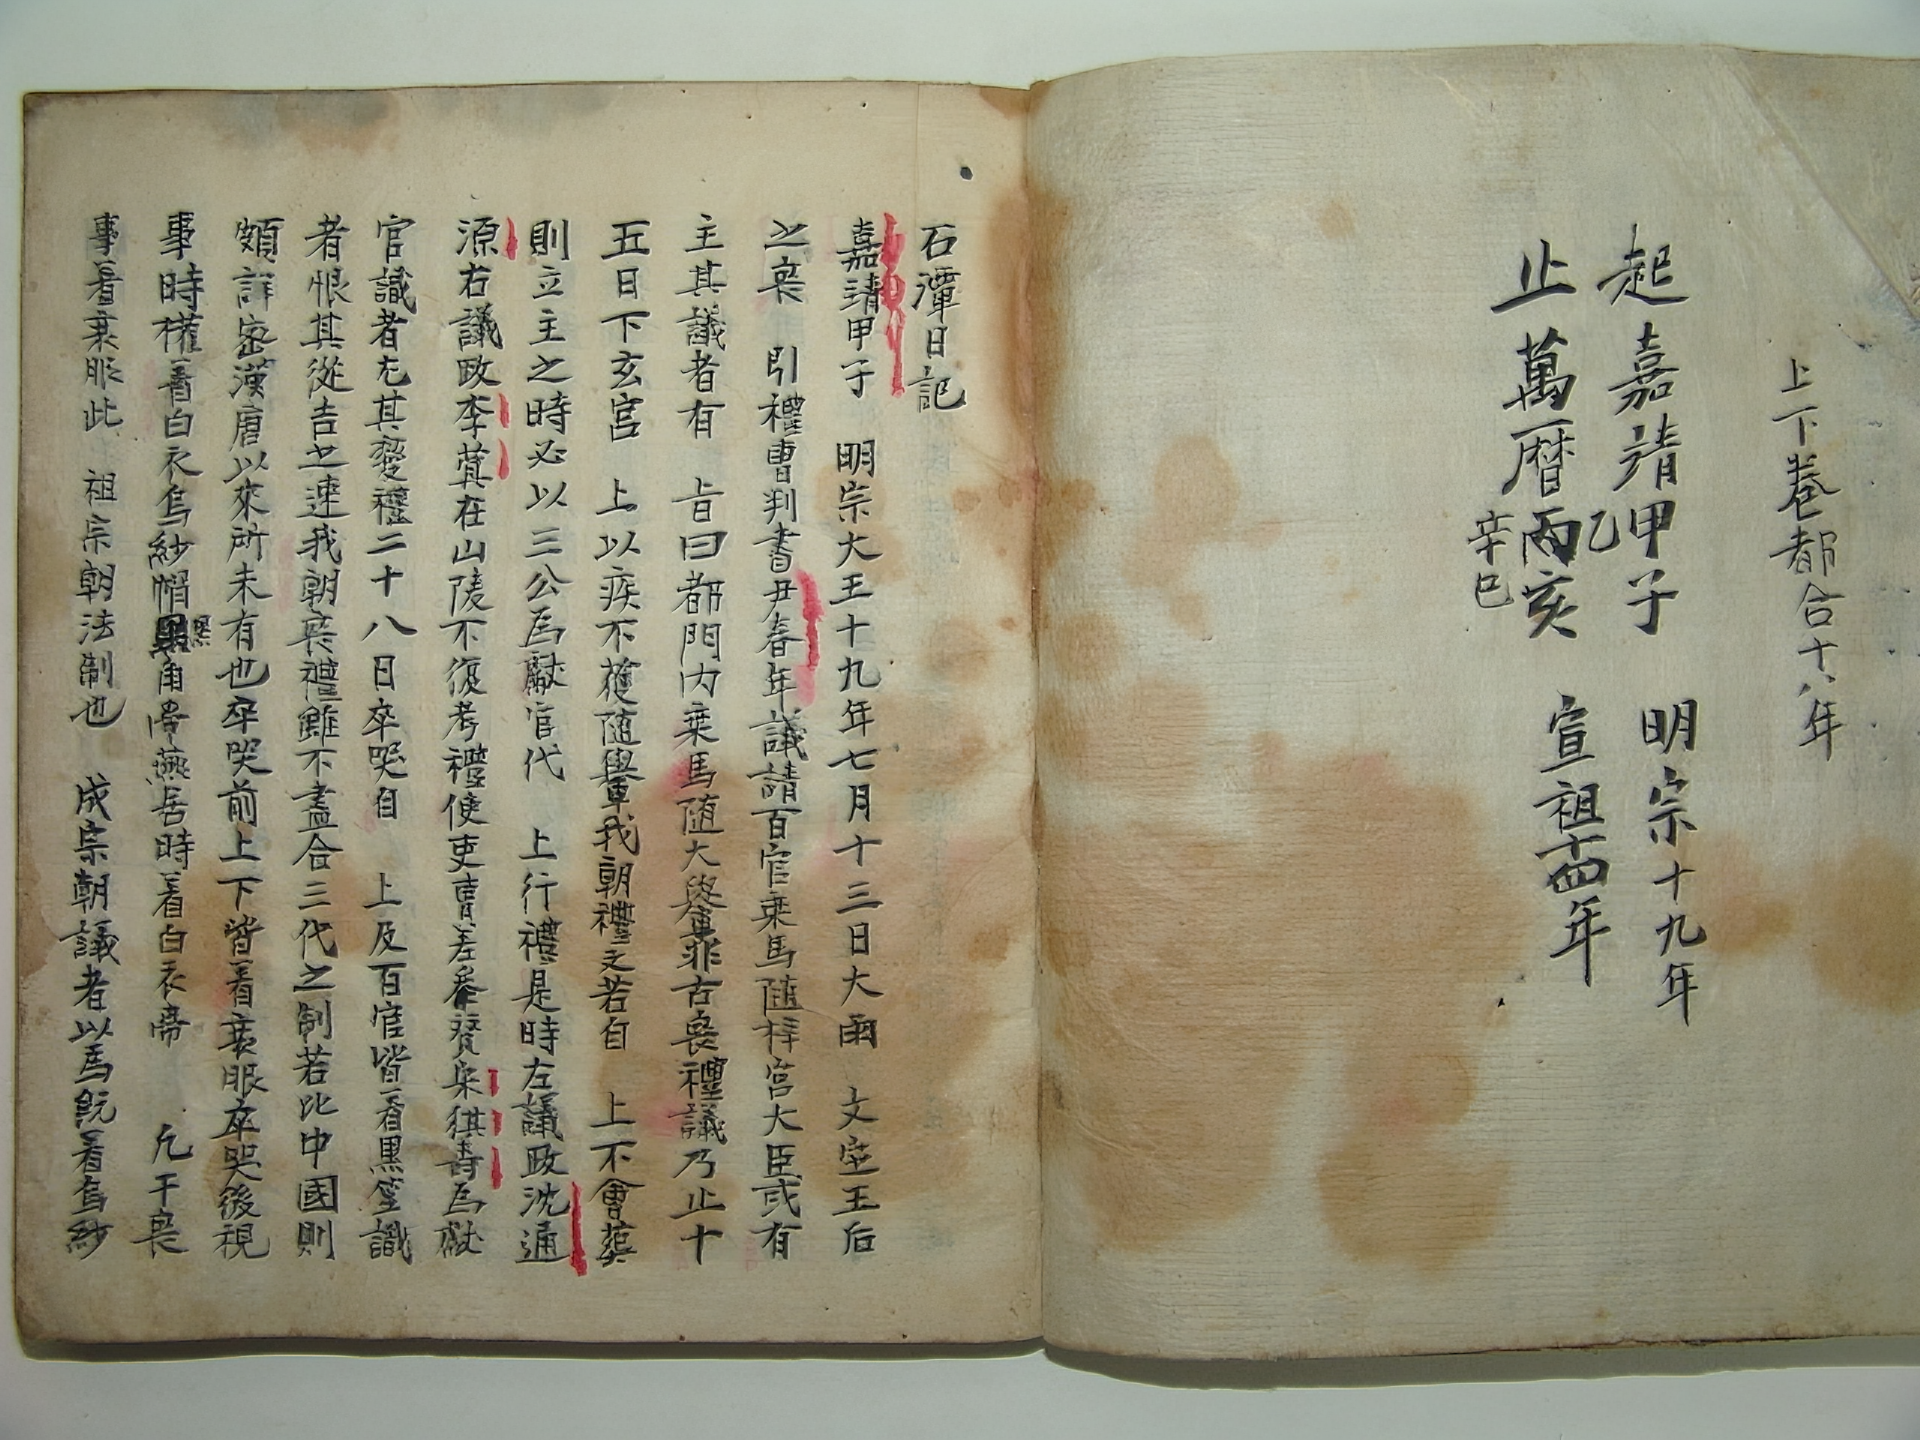 上下卷都合十八年
起嘉靖甲子 明宗十九年
乙
止萬曆丙亥 宣祖十四年
辛巳
石潭日記
嘉靖甲子 明宗大王十九年七月十三日大雨 文定王后
之喪 引禮曹判書尹春年議請百官乘馬随梓宮大臣或有
主其議者有 旨曰都門內乘馬随大輿輦非古喪禮議乃止十
五日下玄宮 上以疾不獲随輿輦我朝禮文若自 上不會葬
則立主之時必以三公爲獻官代 上行禮是時左議政沈通
源右議政李蓂在山陵不復考禮使吏曹差參贊宋猉壽爲獻
官識者尤其變禮二十八日卒哭自 上及百官皆着黑笠識
者恨其從吉之速我朝喪禮雖不盡合三代之制若比中國則
頗詳密漢唐以來所未有也卒哭前上下皆着衰服卒哭後視
事時權着白衣烏紗帽黑角帶燕居時着白衣帶 凡干喪
事着衰服此 祖宗朝法制也 成宗朝議者以爲旣着烏紗